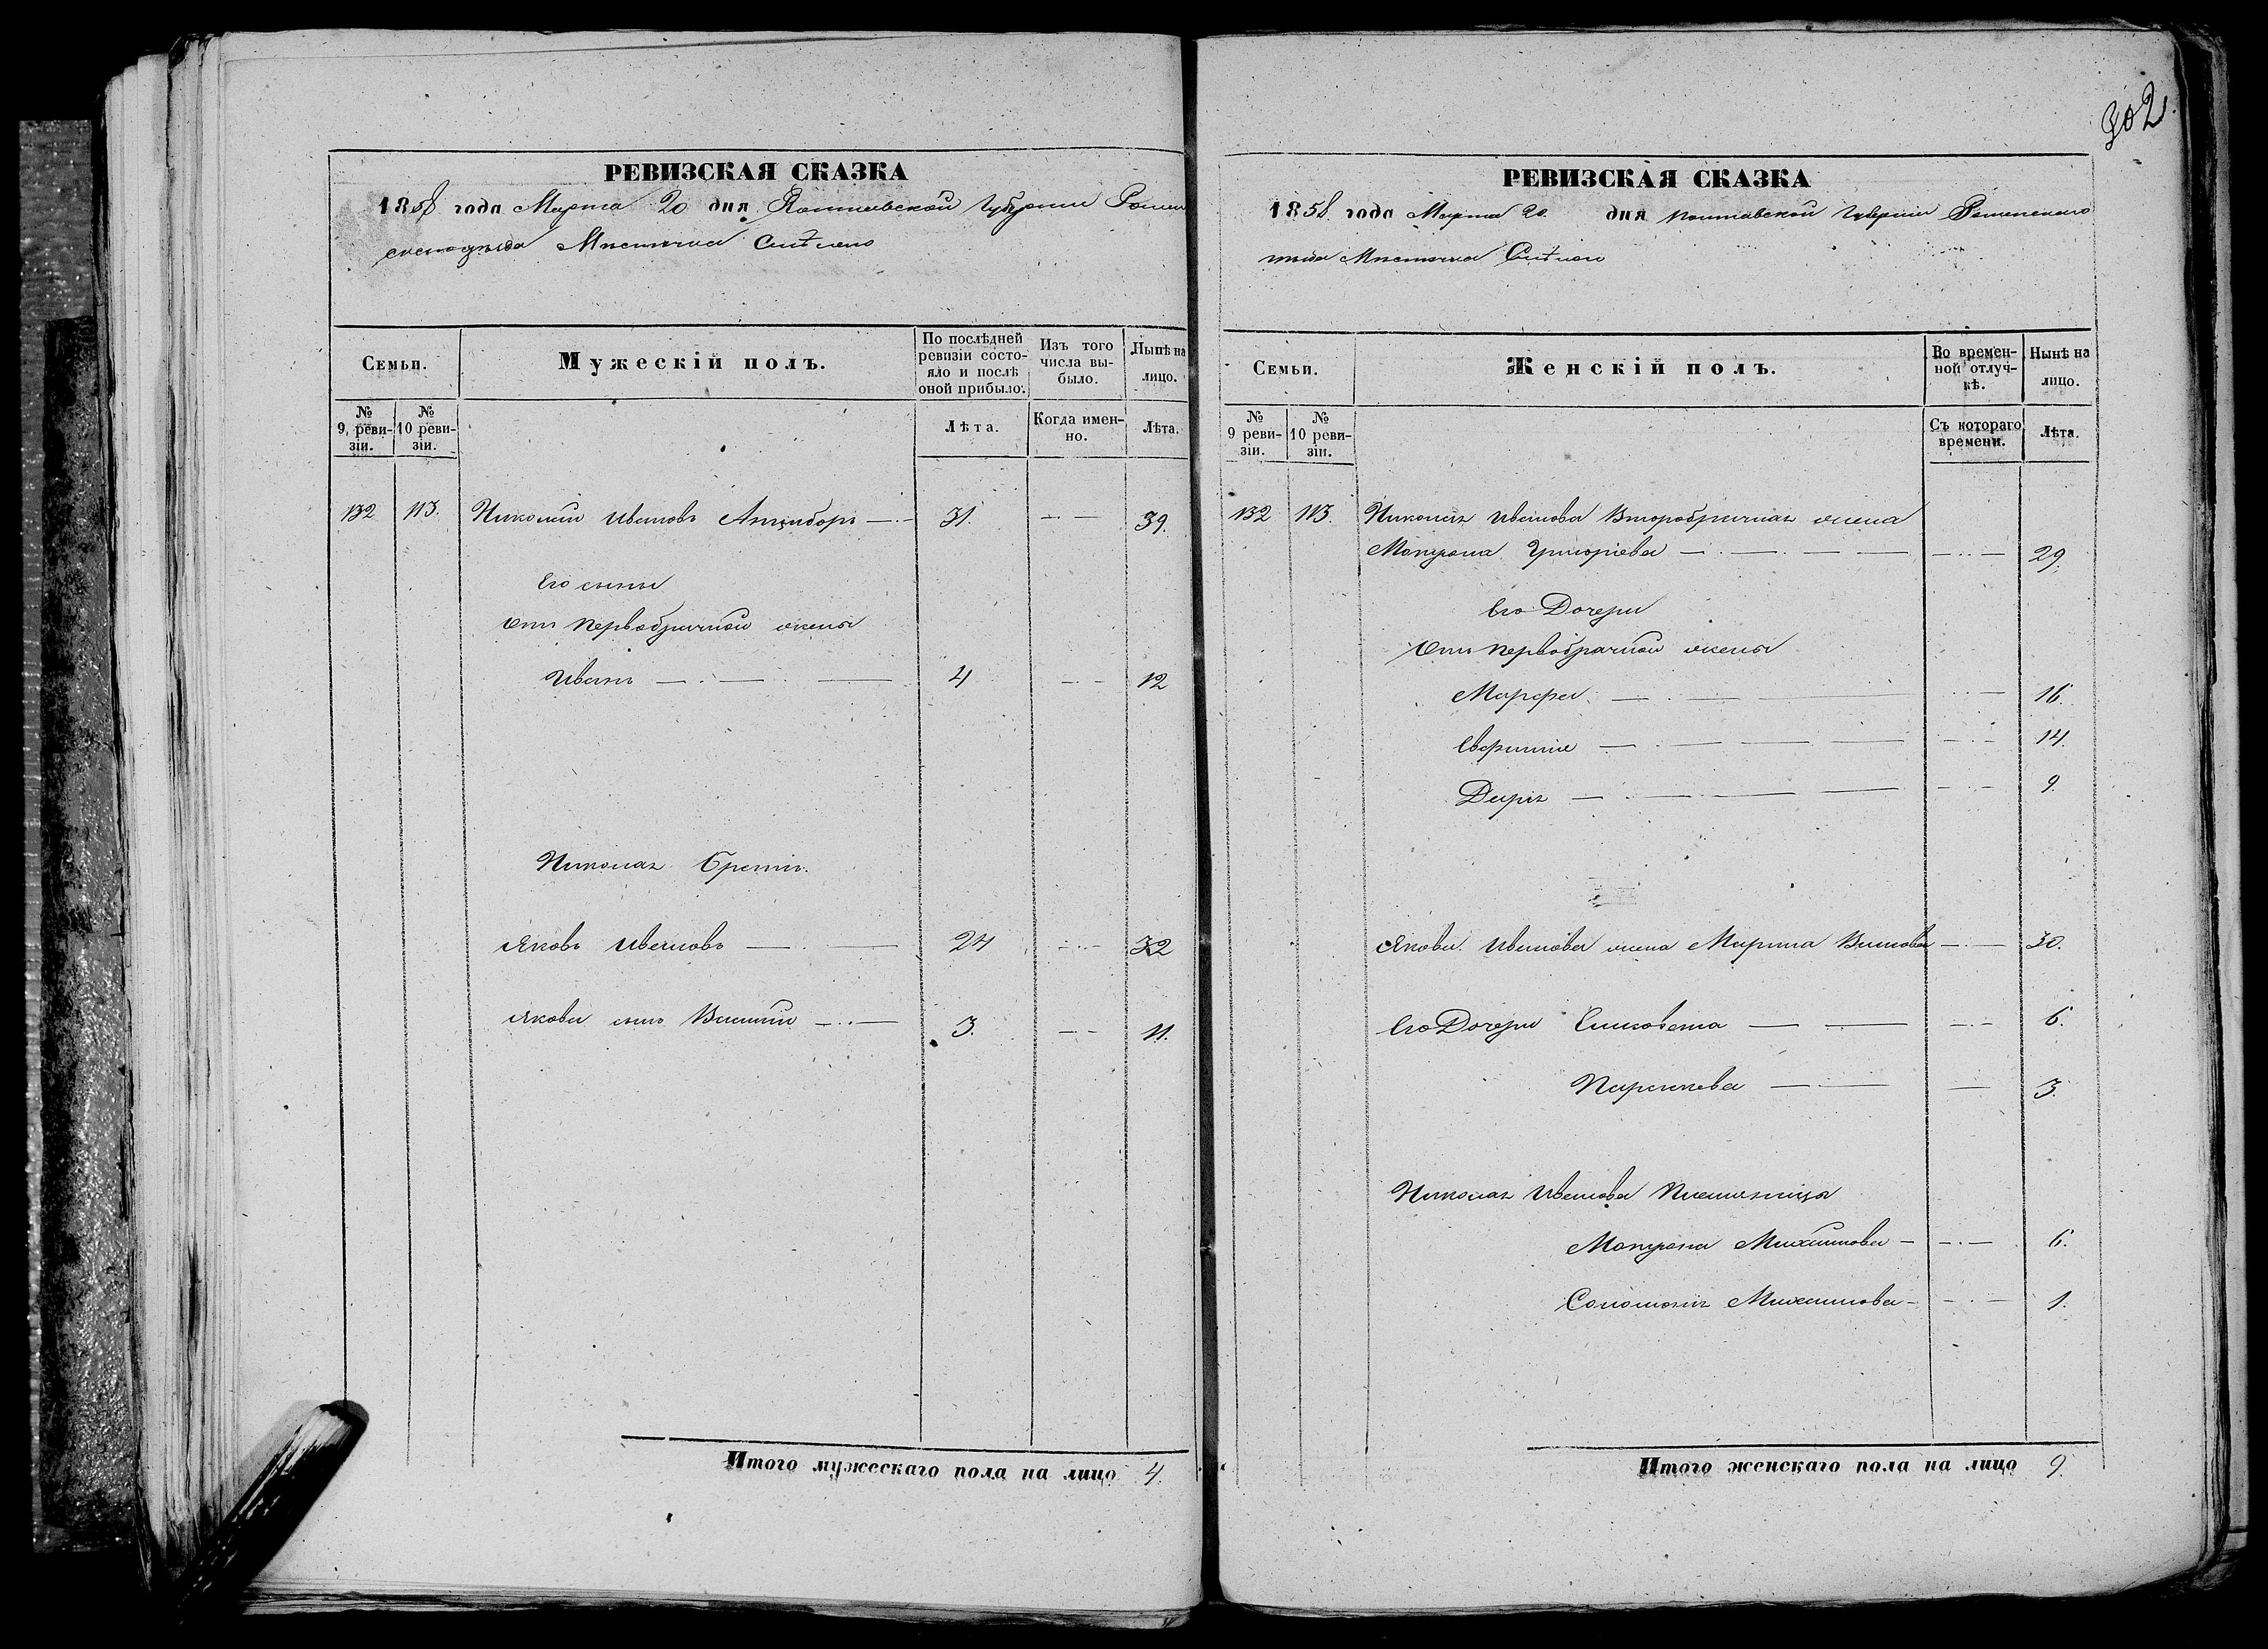 302.
РЕВИЗСКАЯ СКАЗКА
1858 года Марта 20 дня Полтавской Губернии Ромен
скаго уѣзда Мѣстечка Смѣлого
Семьи.
Мужескій полъ.
По послѣдней ревизіи состояло и послѣ оной прибыло.
Изъ того числа выбыло.
Нынѣ на лицо.
№ 9 ревизіи.
№ 10 ревизіи.
Лѣта.
Когда именно.
Лѣта.
132 113. Николай Ивановъ Анцыборъ 31. 39.
Его сыны
отъ первобрачной жены
Иванъ 4 12
Николая Братъ.
Яковъ Ивановъ 24 32
Якова сынъ Василій 3. 11.
Итого мужескаго пола на лицо 4.
РЕВИЗСКАЯ СКАЗКА
1858. года Марта 20. дня Полтавской Губерніи Роменскаго
уѣзда Мѣстечка Смѣлого
Семьи.
Женскій полъ.
Во временной отлучкѣ.
Нынѣ на лицо.
№ 9 ревизіи.
№ 10 ревизіи.
Съ котораго времени.
Лѣта.
132 113. Николая Иванова Второбрачная жена
Матрона Григоріева 29.
Его Дочери
отъ первобрачной жены
Марфа 16.
14.
Дарья 9.
Якова Иванова жена Марина 30.
Его Дочери Елисавета 6.
Параскева 3.
Николая Иванова Племянницы
Матрона Михайлова 6.
Соломонія Михайлова 1.
Итого женскаго пола на лицо 9.